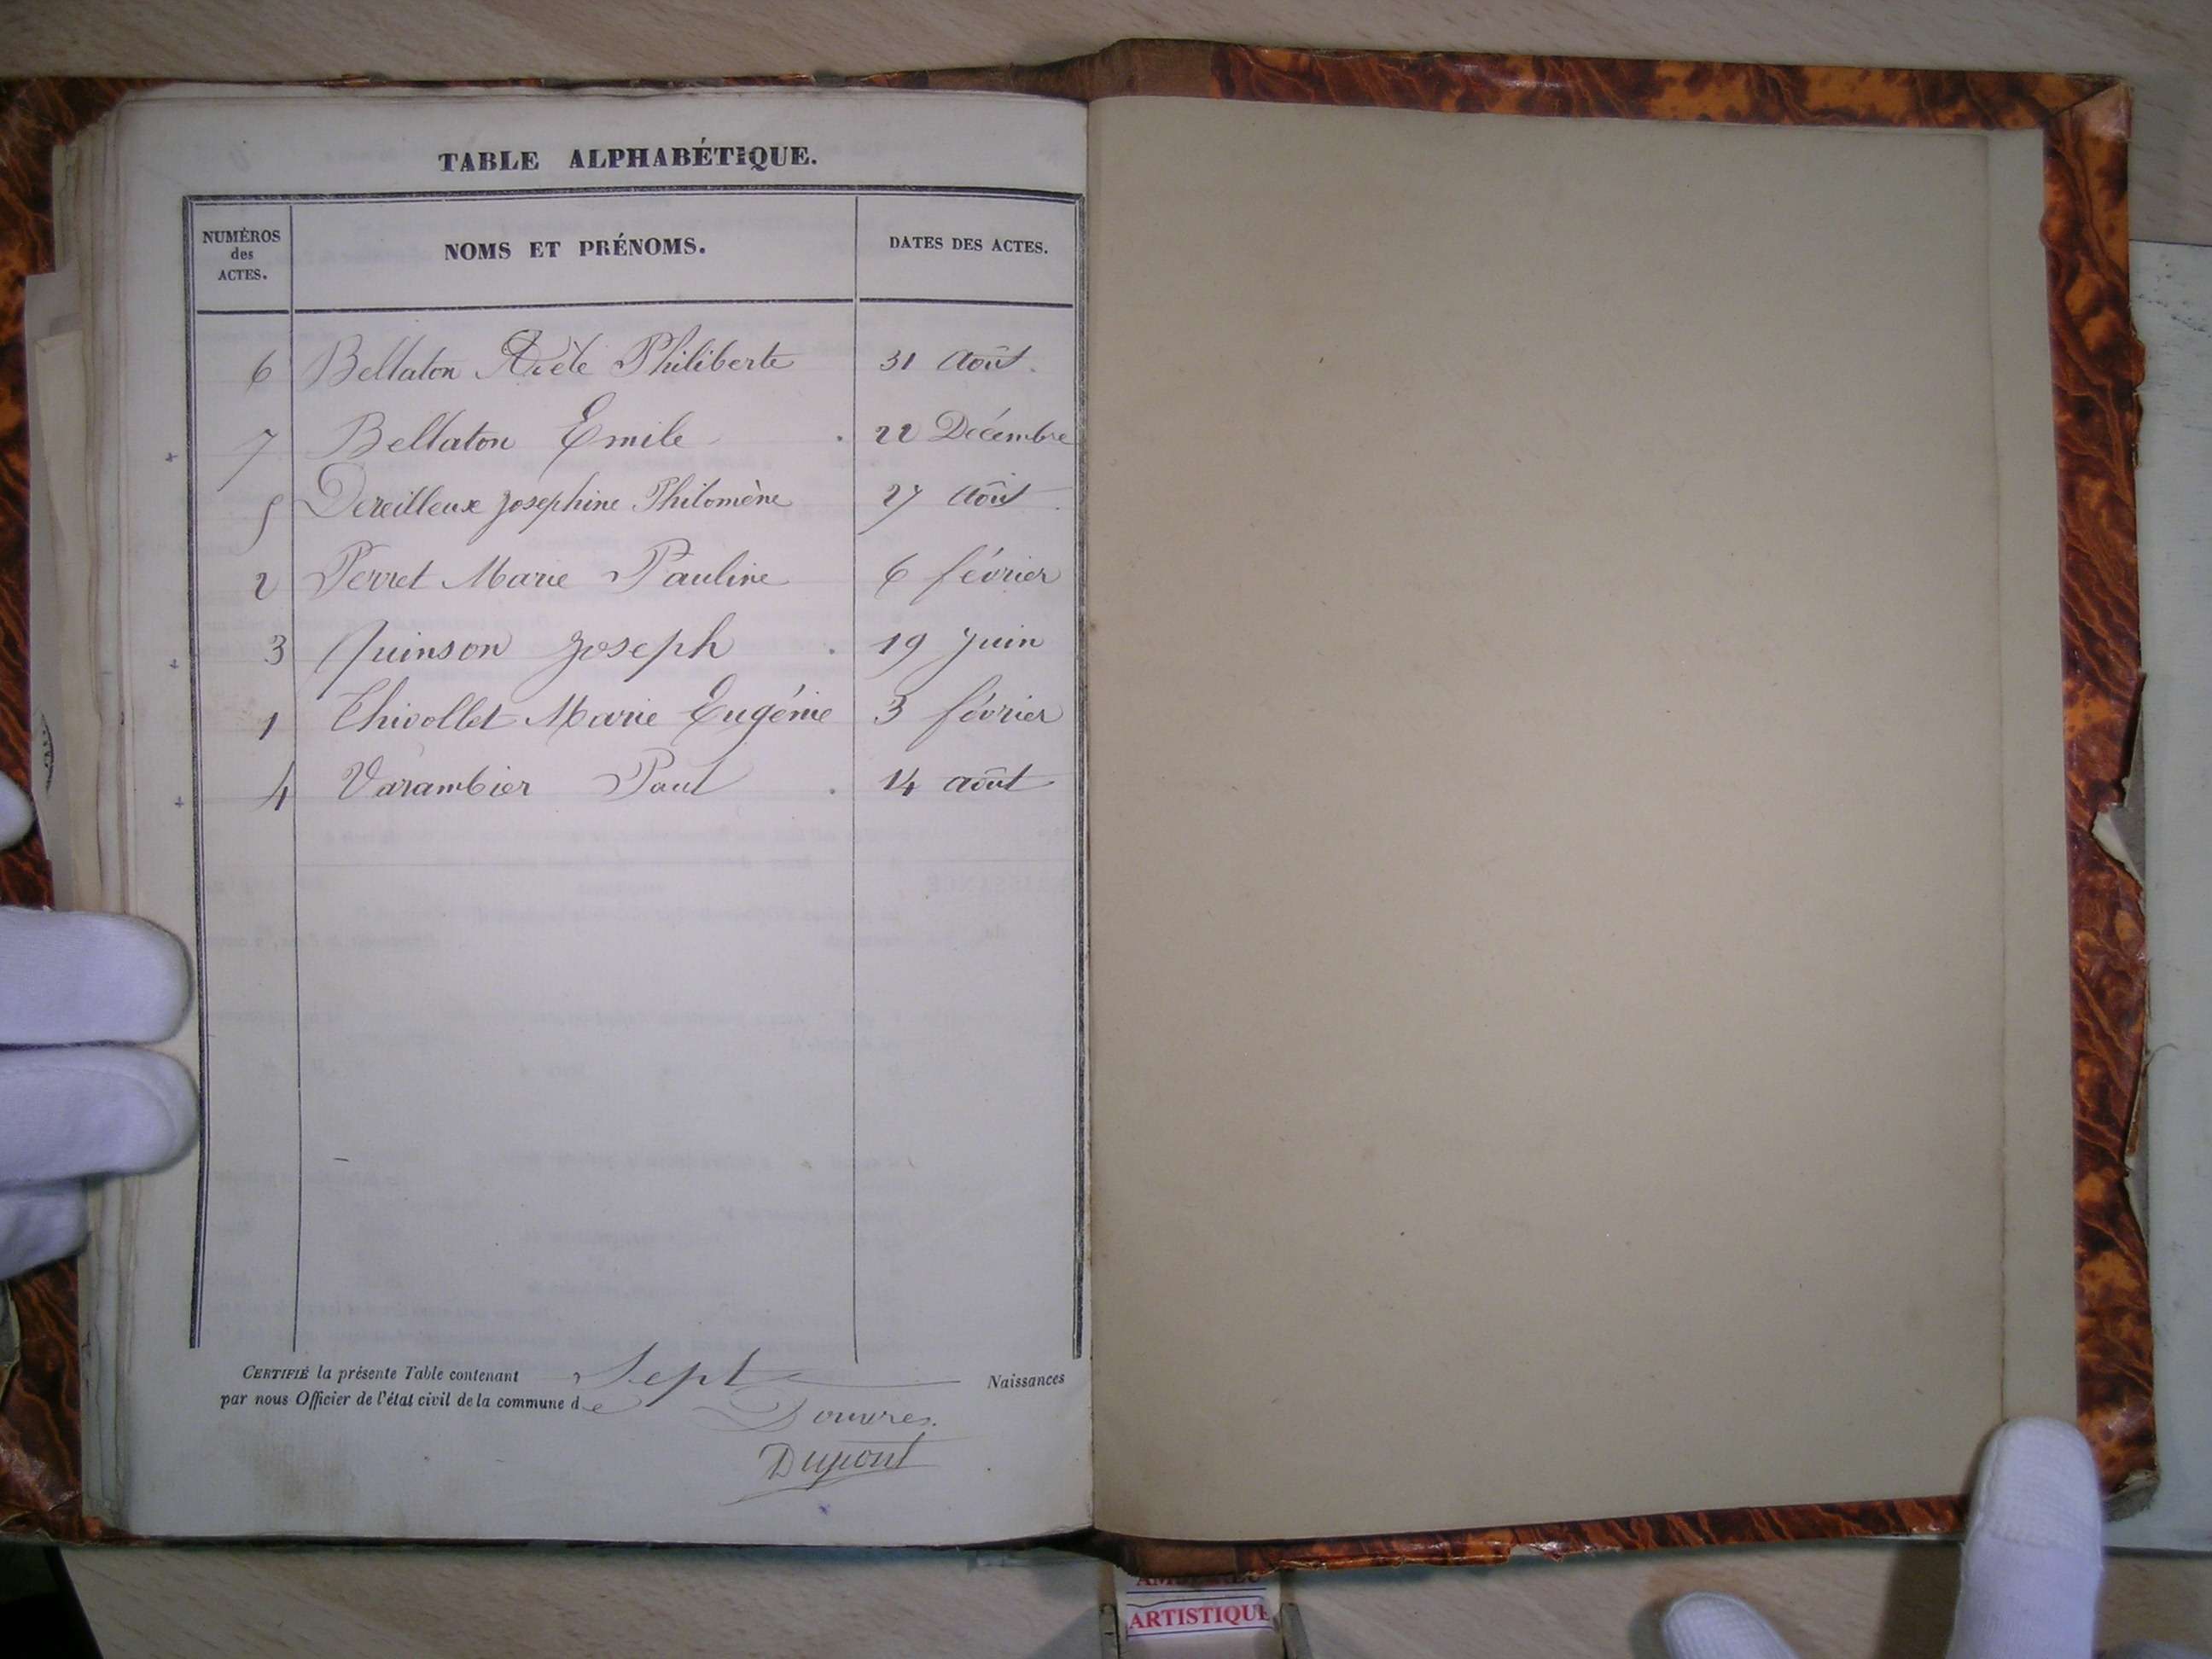 TABLE ALPHABÉTIQUE.
NUMÉROS des ACTES. NOMS ET PRÉNOMS. DATES DES ACTES.
6 Bellaton Philiberte 31 Août.
7 Bellaton Emile 22 Décembre
5 Dereilleux Josephine Philomène 27 Août
2 Perret Marie Pauline 6 février
3 Quinson Joseph 19 Juin
1 Thivollet Marie Eugénie 3 février
4 Varambier Paul 14 août
CERTIFIÉ la présente Table contenant Sept Naissances
par nous Officier de l'état civil de la commune de Douvres.
Dupont
ARTISTIQUE